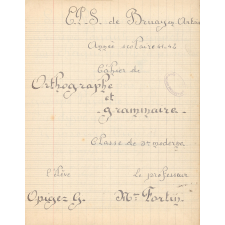 E.P.S. de Bruay en Artois
Année scolaire 41-42
Cahier de
Orthographe
et
grammaire
Classe de 3e moderne
L'élève
Le professeur
Opigez G.
Mr Fortin